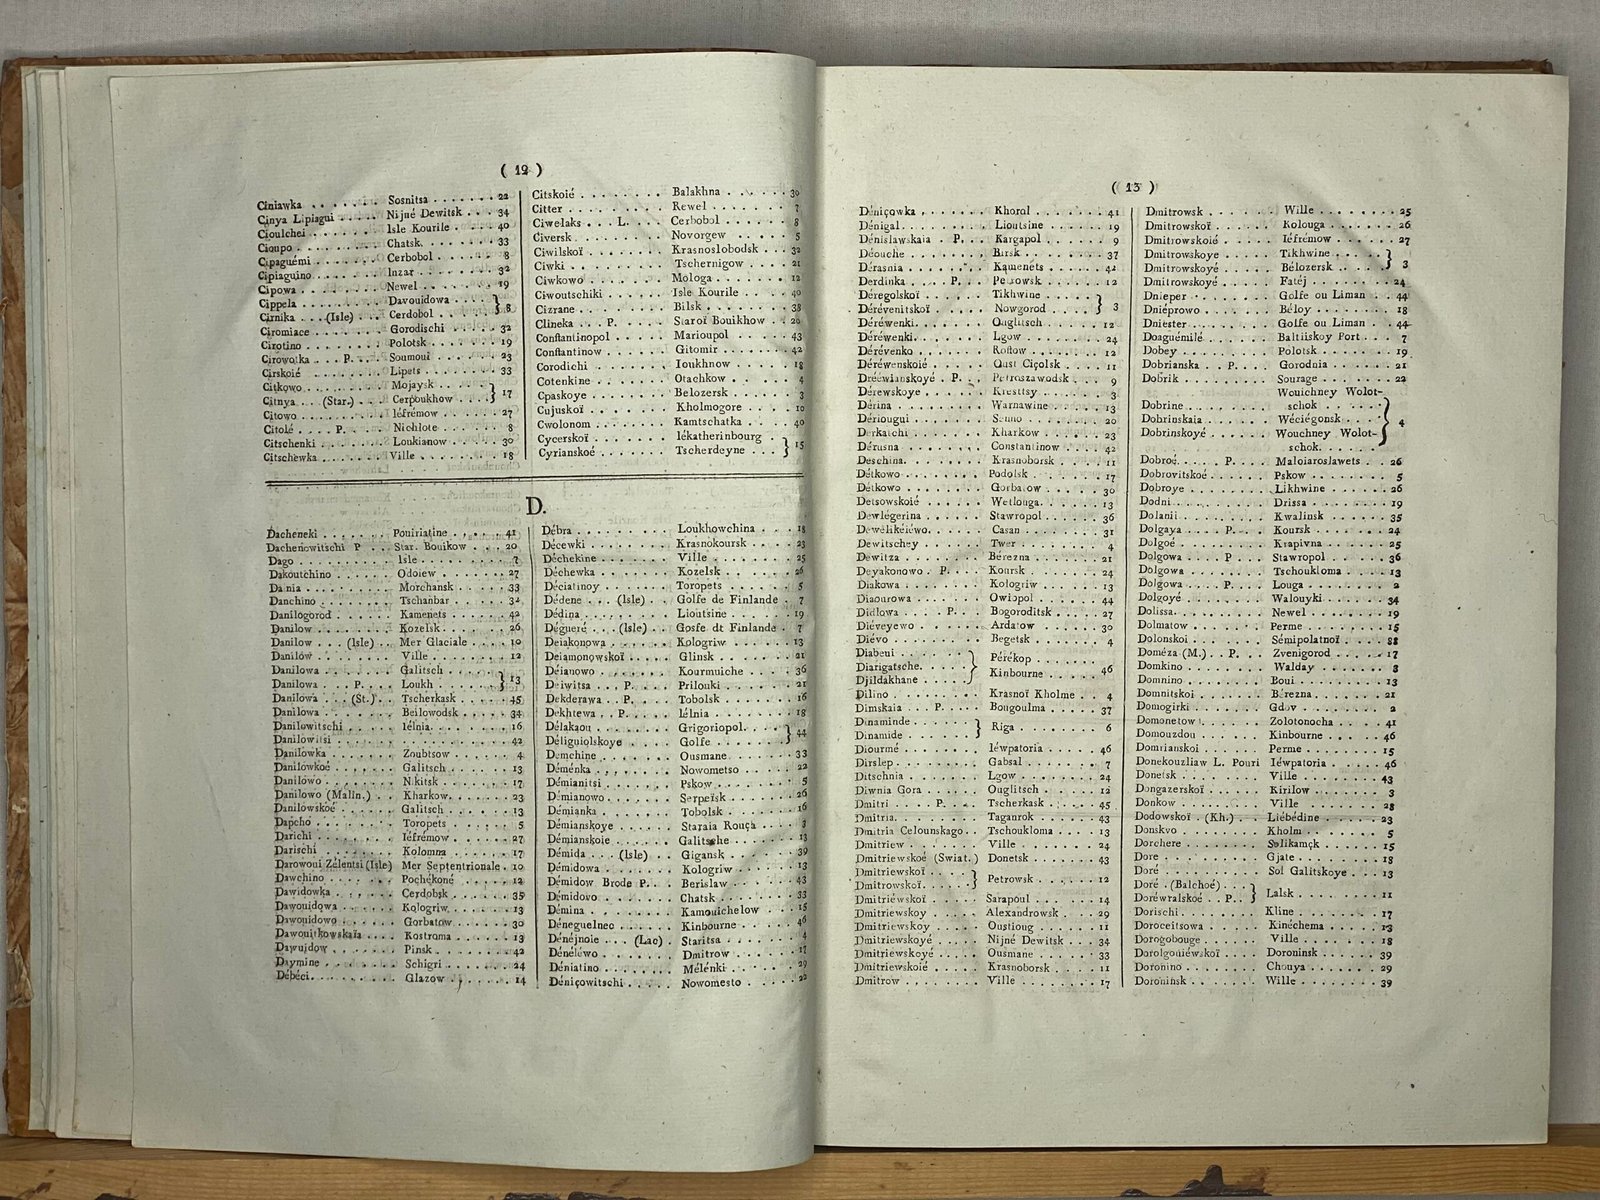 ( 12 )
Ciniawka . . . . . . . Sosnitsa . . . . . . . 22
Cinya Lipiagui . . . . . Nijné Dewitsk . . . 34
Cioulchei . . . . . . . Isle Kourile . . . . 40
Cioupo . . . . . . . . Chatsk. . . . . . . . 33
Cipaguémi . . . . . . . Cerbobol . . . . . . 8
Cipiaguino . . . . . . Inzar . . . . . . . . 32
Cipowa . . . . . . . . Newel . . . . . . . . 19
Cippela . . . . . . . . Davouidowa . . . . } 8
Cirnika . . . (Isle) . . Cerdobol . . . . .
Ciromiace . . . . . . . Gorodischi . . . . . 32
Cirotino . . . . . . . Polotsk . . . . . . . 19
Cirowotka . . P. . . . Soumouï . . . . . . . 23
Cirskoié . . . . . . . Lipets . . . . . . . 33
Citkowo . . . . . . . . Mojaysk . . . . . } 17
Citnya . . . (Star.) . . Cerpoukhow . . . .
Citowo . . . . . . . . Iéfrémow . . . . . . 27
Citolé . . . . P. . . . Nichlote . . . . . . 8
Citschenki . . . . . . Loukianow . . . . . . 30
Citschewka . . . . . . Ville . . . . . . . . 18
Citskoié . . . . . . . Balakhna . . . . . . 30
Citter . . . . . . . . Rewel . . . . . . . . 7
Ciwelaks . . . L. . . . Cerbobol . . . . . . 8
Civersk . . . . . . . . Novorgew . . . . . . 5
Ciwilskoï . . . . . . . Krasnoslobodsk . . . 32
Ciwki . . . . . . . . . Tschernigow . . . . 21
Ciwkowo . . . . . . . . Mologa . . . . . . . 12
Ciwoutschiki . . . . . Isle Kourile . . . . 40
Cizrane . . . . . . . . Bilsk . . . . . . . . 38
Clineka . . . P. . . . Staroï Bouikhow . . 20
Constantinopol . . . . Marioupol . . . . . . 43
Constantinow . . . . . Gitomir . . . . . . . 42
Corodichi . . . . . . . Ioukhnow . . . . . . 18
Cotenkine . . . . . . . Otachkow . . . . . . 4
Cpaskoye . . . . . . . Belozersk . . . . . . 3
Cujuskoï . . . . . . . Kholmogore . . . . . 10
Cwolonom . . . . . . . Kamtschatka . . . . . 40
Cycerskoï . . . . . . . Iékatherinbourg } 15
Cyrianskoé . . . . . . Tscherdeyne . . .
D.
Dacheneki . . . . . . . Pouiriatine . . . . . 41
Dachenowitschi P . . . Star. Bouikow . . . . 20
Dago . . . . . . . . . Isle . . . . . . . . 7
Dakoutchino . . . . . . Odoiew . . . . . . . 27
Dania . . . . . . . . . Morchansk . . . . . . 33
Danchino . . . . . . . Tschanbar . . . . . . 32
Danilogorod . . . . . . Kamenets . . . . . . 42
Danilow . . . . . . . . Kozelsk . . . . . . . 26
Danilow . . . (Isle) . . Mer Glaciale . . . . 10
Danilow . . . . . . . . Ville . . . . . . . . 12
Danilowa . . . . . . . Galitsch . . . . . } 13
Danilowa . . . P. . . . Loukh . . . . . . .
Danilowa . . . (St.) . . Tscherkask . . . . . 45
Danilowa . . . . . . . Beilowodsk . . . . . 34
Danilowitschi . . . . . Iélnia. . . . . . . . 16
Danilowitsi . . . . . . . . . . . . . . . . . 42
Danilowka . . . . . . . Zoubtsow . . . . . . 4
Danilowkoé . . . . . . Galitsch . . . . . . 13
Danilowo . . . . . . . Nikitsk . . . . . . . 17
Danilowo (Malin.) . . . Kharkow. . . . . . . 23
Danilowskoe . . . . . . Galitsch . . . . . . 13
Dapcho . . . . . . . . Toropets . . . . . . 5
Darichi . . . . . . . . Iéfrémow . . . . . . 27
Darischi . . . . . . . Kolomna . . . . . . . 17
Darowoui Zélentsi (Isle) Mer Septentrionale . 10
Dawchino . . . . . . . Pochékoné . . . . . . 12
Dawidowka . . . . . . . Cerdobsk . . . . . . 35
Dawouidowa . . . . . . Kologriw. . . . . . . 13
Dawouidowo . . . . . . Gorbatow . . . . . . 30
Dawouitkowskaïa . . . . Kostroma . . . . . . 13
Dawujdow . . . . . . . Pinsk . . . . . . . . 42
Daymine . . . . . . . . Schigri . . . . . . . 24
Débéci. . . . . . . . . Glazow . . . . . . . 14
Débra . . . . . . . . . Loukhowchina . . . . 18
Décewki . . . . . . . . Krasnokoursk . . . . 23
Déchekine . . . . . . . Ville . . . . . . . . 25
Déchewka . . . . . . . Kozelsk . . . . . . . 26
Déciatinoy . . . . . . Toropets . . . . . . 5
Dédene . . . (Isle) . . Golfe de Finlande . . 7
Dédina . . . . . . . . Lioutsine . . . . . . 19
Dégueré . . . (Isle) . . Gosfe dt Finlande . . 7
Deiakonowa . . . . . . Kologriw . . . . . . 13
Deiamonowskoï . . . . . Glinsk . . . . . . . 21
Déianowo . . . . . . . Kourmuiche . . . . . 36
Deiwitsa . . . P. . . . Prilouki . . . . . . 21
Dekderawa . . P. . . . Tobolsk . . . . . . . 16
Dekhtewa . . P. . . . . Iélnia . . . . . . . 18
Délakaou . . . . . . . Grigoriopol. . . . } 44
Déliguiolskoye . . . . Golfe . . . . . . .
Demchine . . . . . . . Ousmane . . . . . . . 33
Déménka . . . . . . . . Nowometso . . . . . . 22
Démianitsi . . . . . . Pskow . . . . . . . . 5
Démianowo . . . . . . . Serpeïsk . . . . . . 26
Démianka . . . . . . . Tobolsk . . . . . . . 16
Démianskoye . . . . . . Staraia Rouça . . . . 3
Démianskoie . . . . . . Galitsche . . . . . . 13
Démida . . . (Isle) . . Gigansk . . . . . . . 39
Démidowa . . . . . . . Kologriw . . . . . . 13
Démidow Brode P. . . . Berislaw . . . . . . 43
Démidovo . . . . . . . Chatsk . . . . . . . 33
Démina . . . . . . . . Kamouichelow . . . . 15
Déneguelnec . . . . . . Kinbourne . . . . . . 46
Dénéjnoie . . . (Lac) . Staritsa . . . . . . 4
Dénéléwo . . . . . . . Dmitrow . . . . . . . 17
Déniatino . . . . . . . Mélénki . . . . . . . 29
Déniçowitschi . . . . . Nowomesto . . . . . . 22
( 13 )
Déniçowka . . . . . . . Khorol . . . . . . . 41
Dénigal . . . . . . . . Lioutsine . . . . . . 19
Dénislawskaia P. . . . Kargapol . . . . . . 9
Déouche . . . . . . . . Birsk . . . . . . . . 37
Dérasnia . . . . . . . Kamenets . . . . . . 42
Derdinka . . . P. . . . Petrowsk . . . . . . 12
Déregolskoï . . . . . . Tikhwine . . . . . } 3
Dérévenitskoï . . . . . Nowgorod . . . . .
Déréwenki. . . . . . . Ouglitsch . . . . . . 12
Déréwenki. . . . . . . Lgow . . . . . . . . 24
Dérévenko . . . . . . . Rostow . . . . . . . 12
Déréwenskoié . . . . . Oust Ciçolsk . . . . 11
Dréewianskoyé . P. . . Petroszawodsk . . . . 9
Dérewskoye . . . . . . Kresttsy . . . . . . 3
Dérina . . . . . . . . Warnawine . . . . . . 13
Dériougui . . . . . . . Senno . . . . . . . . 20
Derkatchi . . . . . . . Kharkow . . . . . . . 23
Dérusna . . . . . . . . Constantinow . . . . 42
Deschina. . . . . . . . Krasnoborsk . . . . . 11
Détkowo . . . . . . . . Podolsk . . . . . . . 17
Détkowo . . . . . . . . Gorbatow . . . . . . 30
Detsowskoié . . . . . . Wetlouga. . . . . . . 13
Dewlégerina . . . . . . Stawropol . . . . . . 36
Dewélikéiéwo. . . . . . Casan . . . . . . . . 31
Dewitschey . . . . . . Twer . . . . . . . . 4
Dewitza . . . . . . . . Bérezna. . . . . . . 21
Deyakonowo . P. . . . . Koursk . . . . . . . 24
Diakowa . . . . . . . . Kologriw . . . . . . 13
Diaourowa . . . . . . . Owiopol . . . . . . . 44
Didlowa . . . P. . . . Bogoroditsk . . . . . 27
Diéveyewo . . . . . . . Ardatow . . . . . . . 30
Diévo . . . . . . . . . Begetsk . . . . . . . 4
Diabeui . . . . . }
Diarigatsche. . . . . Pérékop . . . . . .
Djildakhane . . . . Kinbourne . . . . . . 46
Dilino . . . . . . . . Krasnoï Kholme . . . 4
Dimskaia . . . P. . . . Bougoulma . . . . . . 37
Dinaminde . . . . . } Riga . . . . . . . . 6
Dinamide . . . . . .
Diourmé . . . . . . . . Iéwpatoria . . . . . 46
Dirslep . . . . . . . . Gabsal . . . . . . . 7
Ditschnia . . . . . . . Lgow . . . . . . . . 24
Diwnia Gora . . . . . . Ouglitsch . . . . . . 12
Dmitri . . . P. . . . . Tscherkask . . . . . 45
Dmitria. . . . . . . . Taganrok . . . . . . 43
Dmitria Celounskago . . Tschoukloma . . . . . 13
Dmitriew . . . . . . . Ville . . . . . . . . 24
Dmitriewskoé (Swiat.) Donetsk . . . . . . . 43
Dmitriewskoï . . . . } Petrowsk . . . . . . 12
Dmitrowskoï. . . . .
Dmitriéwskoï . . . . . Sarapoul . . . . . . 14
Dmitriewskoy . . . . . Alexandrowsk . . . . 29
Dmitriewskoy . . . . . Oustioug . . . . . . 11
Dmitriewskoyé . . . . . Nijné Dewitsk . . . . 34
Dmitriewskoyé. . . . . Ousmane . . . . . . . 33
Dmitriewskoié . . . . . Krasnoborsk . . . . . 11
Dmitrow . . . . . . . . Ville . . . . . . . . 17
Dmitrowsk . . . . . . . Wille . . . . . . . . 25
Dmitrowskoï . . . . . . Kolouga . . . . . . . 26
Dmitrowskoié . . . . . Iéfrémow . . . . . . 27
Dmitrowskoye . . . . . Tikhwine . . . . . } 3
Dmitrowskoyé . . . . . Bélozersk . . . . .
Dmitrowskoyé . . . . . Fatéj . . . . . . . . 24
Dnieper . . . . . . . . Golfe ou Liman . . . 44
Dniéprowo . . . . . . . Béloy . . . . . . . . 18
Dniester . . . . . . . Golfe ou Liman . . . 44
Doaguémilé . . . . . . Baltiiskoy Port . . . 7
Dobey . . . . . . . . . Polotsk . . . . . . . 19
Dobrianska . . P. . . . Gorodnia . . . . . . 21
Dobrik . . . . . . . . Sourage . . . . . . . 22
Wouichney Wolot-
Dobrine . . . . . . . . schok . . . . . . }
Dobrinskaia . . . . . . Wéciégonsk . . . . 4
Dobrinskoyé . . . . . . Wouchney Wolot-
schok. . . . . .
Dobroé. . . . . P. . . Maloiaroslawets . . . 26
Dobrovitskoé . . . . . Pskow . . . . . . . . 5
Dobroye . . . . . . . . Likhwine . . . . . . 26
Dodni . . . . . . . . . Drissa . . . . . . . 19
Dolanii . . . . . . . . Kwalinsk . . . . . . 35
Dolgaya . . . . P. . . Koursk . . . . . . . 24
Dolgoé . . . . . . . . Krapivna . . . . . . 25
Dolgowa . . . . P . . . Stawropol . . . . . . 36
Dolgowa . . . . . . . . Tschoukloma . . . . . 13
Dolgowa . . . . P. . . Louga . . . . . . . . 2
Dolgoyé . . . . . . . . Walouyki . . . . . . 34
Dolissa. . . . . . . . Newel . . . . . . . . 19
Dolmatow . . . . . . . Perme . . . . . . . . 15
Dolonskoi . . . . . . . Sémipolatnoï . . . . 88
Doméza (M.) . . P. . . Zvenigorod . . . . . 17
Domkino . . . . . . . . Walday . . . . . . . 3
Domnino . . . . . . . . Boui . . . . . . . . 13
Domnitskoi . . . . . . Bérezna . . . . . . . 21
Domogirki . . . . . . . Gdov . . . . . . . . 2
Domonetow . . . . . . . Zolotonocha . . . . . 41
Domouzdou . . . . . . . Kinbourne . . . . . . 46
Domrianskoi . . . . . . Perme . . . . . . . . 15
Donekouzliaw L. Pouri Iéwpatoria . . . . . . 46
Donetsk . . . . . . . . Ville . . . . . . . . 43
Dongazerskoï . . . . . Kirilow . . . . . . . 3
Donkow . . . . . . . . Ville . . . . . . . . 28
Dodowskoï . (Kh.) . . . Liébédine . . . . . . 23
Donskvo . . . . . . . . Kholm . . . . . . . . 5
Dorchere . . . . . . . Solikamçk . . . . . . 15
Dore . . . . . . . . . Gjate . . . . . . . . 18
Doré . . . . . . . . . Sol Galitskoye . . . 13
Doré . (Balchoé) . . } Lalsk . . . . . . . . 11
Doréwralskoé . . P. .
Dorischi . . . . . . . Kline . . . . . . . . 17
Doroceitsowa . . . . . Kinéchema . . . . . . 13
Dorogobouge . . . . . . Ville . . . . . . . . 18
Dorolgoniéwskoï . . . . Doroninsk . . . . . . 39
Doronino . . . . . . . Chouya . . . . . . . 29
Doroninsk . . . . . . . Wille . . . . . . . . 39